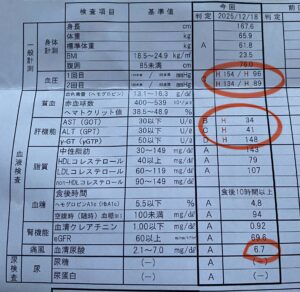 検査項目 基準値 今回
判定 2025/12/18 判定
一般計測 身体計測 身長 cm 167.6
体重 kg 65.9
標準体重 kg A 61.8
BMI 18.5~24.9 23.5
腹囲 85未満 cm 76.0
血圧 1回目 A H 154 / H 96
2回目 H 134 / H 89
血液検査 貧血 血色素量(ヘモグロビン) 13.1~16.3 g/dl
赤血球数 400~539
ヘマトクリット値 38.5~48.9 %
肝機能 AST(GOT) 30以下 U/L B H 34
ALT(GPT) 30以下 U/L C H 41
γ-GT(γGTP) 50以下 U/L D H 148
脂質 中性脂肪 30~149 A 143
HDLコレステロール 40以上 A 79
LDLコレステロール 60~119 A 107
non-HDLコレステロール 90~149
血糖 食後時間 食後10時間以上
ヘモグロビンA1c(HbA1C) 5.5以下 % A 4.8
空腹時(随時)血糖 100未満 A 94
腎機能 血清クレアチニン 1.00以下 A 0.92
eGFR 60以上 A 69.6
痛風 血清尿酸 2.1~7.0 A 6.7
尿検査 尿 尿糖 (-) A (-)
尿蛋白 (-) A (-)